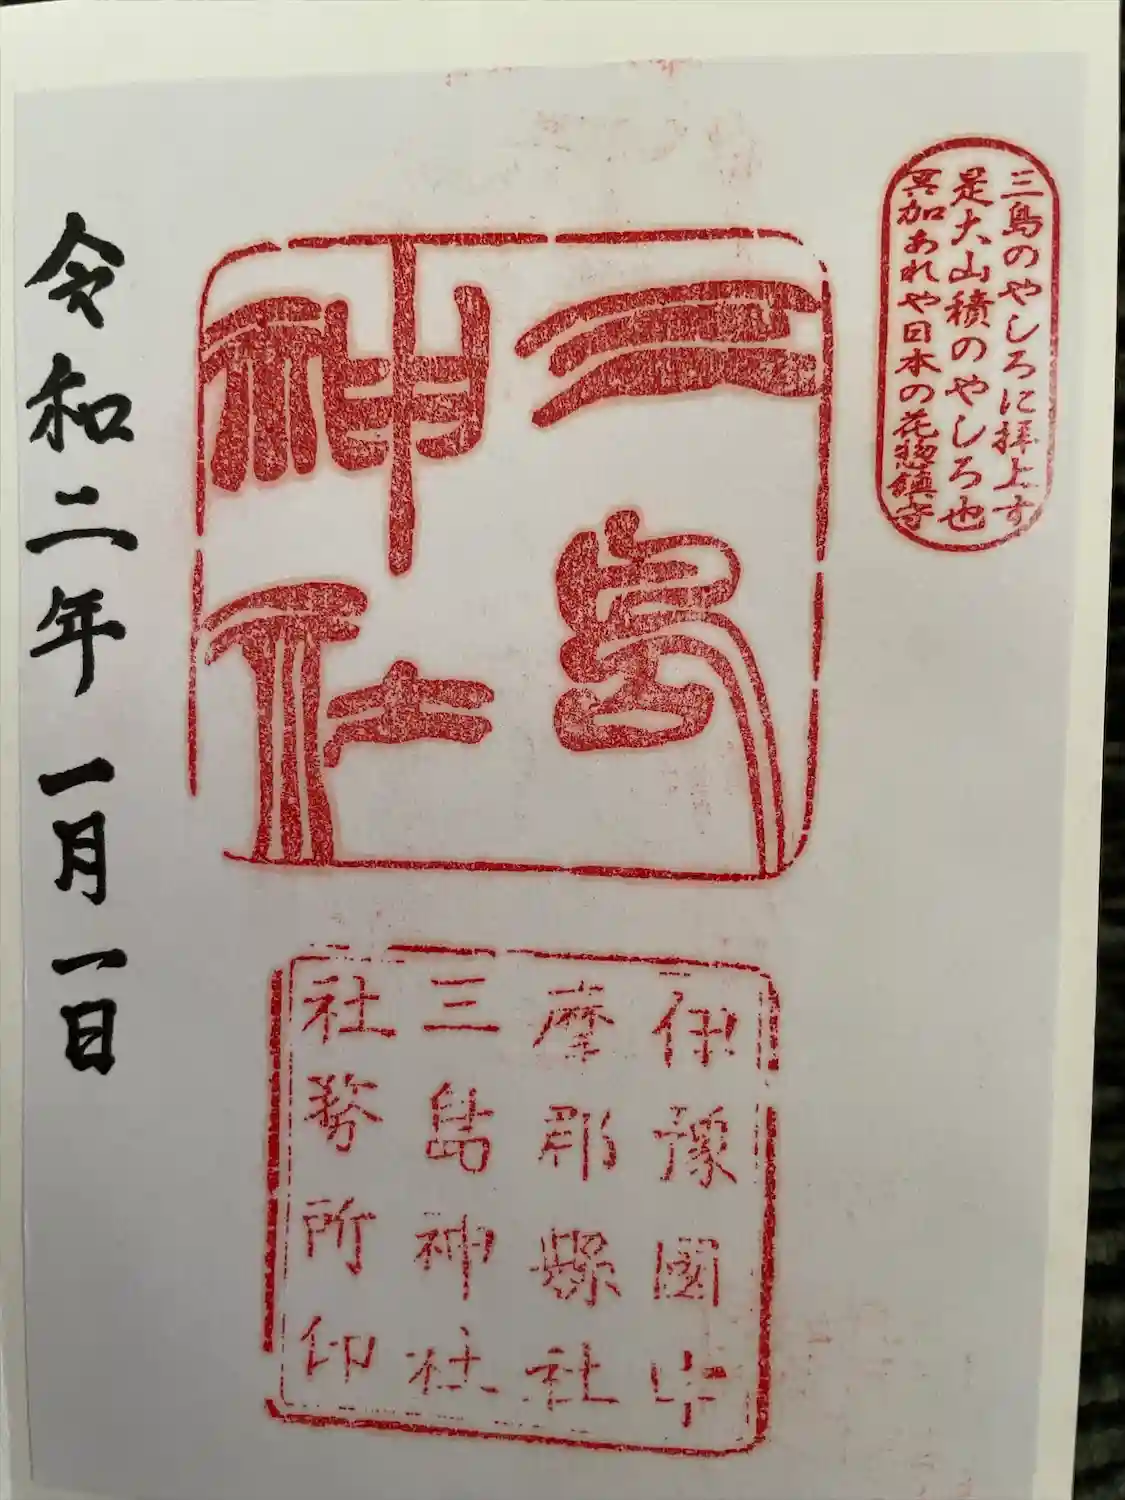 三島のやしろに拝上す
是大山積のやしろ也
冥加あれや日本の花惣鎮守
三島
神社
伊豫國宇
摩郡縣社
三島神社
社務所印
令和二年一月一日